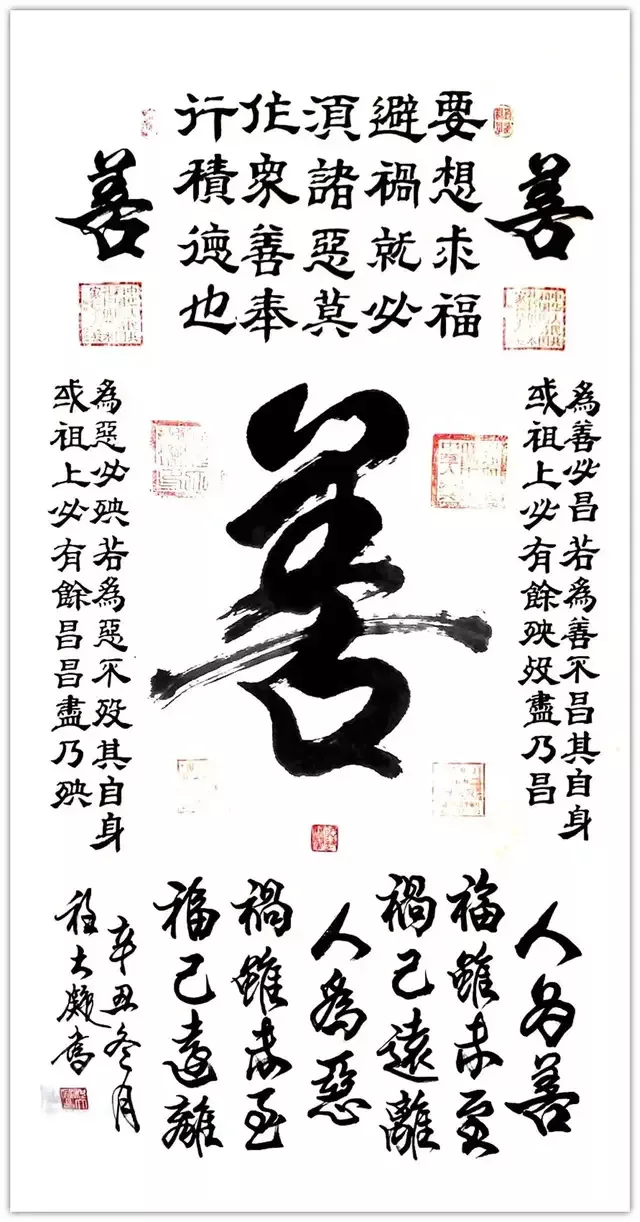 善
要想求福
避禍就必
須諸惡莫
作衆善奉
行積德也
善
為善必昌若為善不昌其自身
或祖上必有餘殃殁盡乃昌
善
為惡必殃若為惡不殁其自身
或祖上必有餘昌昌盡乃殃
人為善
福雖未至
禍已遠離
人為惡
禍雖未至
福已遠離
辛丑冬月